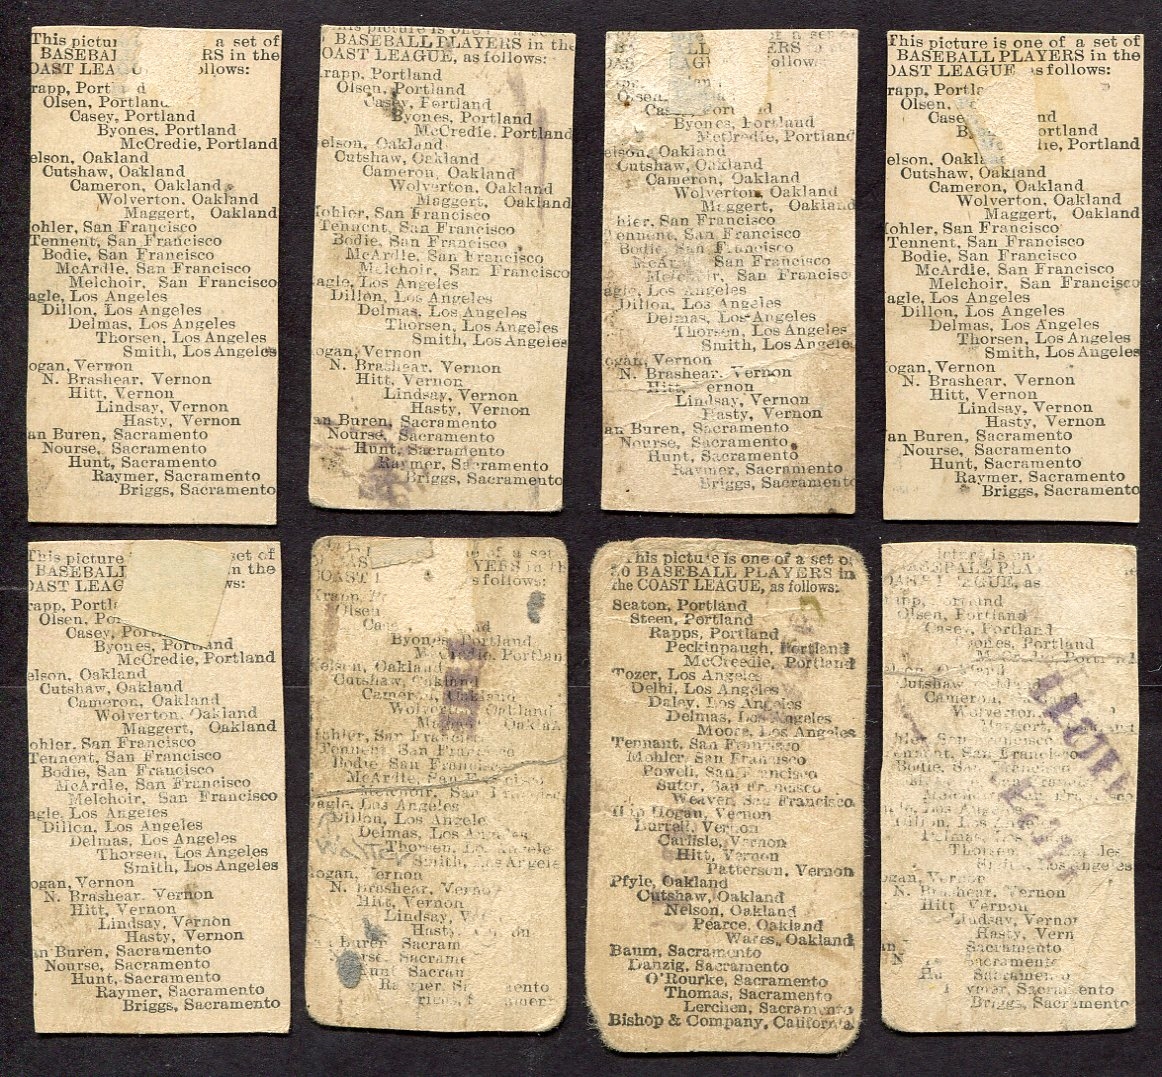 This pictur a set of
BASEBAL RS in the
OAST LEAGU ollows:
rapp, Portl d
Olsen, Portland
Casey, Portland
Byones, Portland
McCredie, Portland
elson, Oakland
Cutshaw, Oakland
Cameron, Oakland
Wolverton, Oakland
Maggert, Oakland
ohler, San Francisco
Tennent, San Francisco
Bodie, San Francisco
McArdle, San Francisco
Melchoir, San Francisco
agle, Los Angeles
Dillon, Los Angeles
Delmas, Los Angeles
Thorsen, Los Angeles
Smith, Los Angeles
ogan, Vernon
N. Brashear, Vernon
Hitt, Vernon
Lindsay, Vernon
Hasty, Vernon
an Buren, Sacramento
Nourse, Sacramento
Hunt, Sacramento
Raymer, Sacramento
Briggs, Sacramento
his picture is one of a se
BASEBALL PLAYERS in the
OAST LEAGUE, as follows:
rapp, Portland
Olsen, Portland
Casey, Portland
Byones, Portland
McCredie, Portland
elson, Oakland
Cutshaw, Oakland
Cameron, Oakland
Wolverton, Oakland
Maggert, Oakland
ohler, San Francisco
Tennent, San Francisco
Bodie, San Francisco
McArdle, San Francisco
Melchoir, San Francisco
agle, Los Angeles
Dillon, Los Angeles
Delmas, Los Angeles
Thorsen, Los Angeles
Smith, Los Angeles
ogan, Vernon
N. Brashear, Vernon
Hitt, Vernon
Lindsay, Vernon
Hasty, Vernon
an Buren, Sacramento
Nourse, Sacramento
Hunt, Sacramento
Raymer, Sacramento
Briggs, Sacramento
Olsen,
Casey, Portland
Byones, Portland
McCredie, Portland
elson, Oakland
Cutshaw, Oakland
Cameron, Oakland
Wolverton, Oakland
Maggert, Oakland
hler, San Francisco
Tennent, San Francisco
Bodie, San Francisco
San Francisco
Melchoir, San Francisco
agle, Los Angeles
Dillon, Los Angeles
Delmas, Los Angeles
Thorsen, Los Angeles
Smith, Los Angele
ogan, Vernon
N. Brashear, Vernon
Hitt, ernon
Lindsay, Vernon
Hasty, Vernon
an Buren, Sacramento
Nourse, Sacramento
Hunt, Sacramento
Raymer, Sacramento
Briggs, Sacramento
This picture is one of a set of
BASEBALL PLAYERS in the
OAST LEAGUE as follows:
rapp, Portla
Olsen,
Case
By
die, Portland
elson, Oakla
Cutshaw, Oakland
Cameron, Oakland
Wolverton, Oakland
Maggert, Oakland
ohler, San Francisco
Tennent, San Francisco
Bodie, San Francisco
McArdle, San Francisco
Melchoir, San Francisco
agle, Los Angeles
Dillon, Los Angeles
Delmas, Los Angeles
Thorsen, Los Angeles
Smith, Los Angeles
ogan, Vernon
N. Brashear, Vernon
Hitt, Vernon
Lindsay, Vernon
Hasty, Vernon
an Buren, Sacramento
Nourse, Sacramento
Hunt, Sacramento
Raymer, Sacramento
Briggs, Sacramento
This picture set of
BASEBAL n the
OAST LEAG ws:
rapp, Portl
Olsen, Por
Casey, Port
Byones, Portland
McCredie, Portland
elson, Oakland
Cutshaw, Oakland
Cameron, Oakland
Wolverton, Oakland
Maggert, Oakland
ohler, San Francisco
Tennent, San Francisco
Bodie, San Francisco
McArdle, San Francisco
Melchoir, San Francisco
agle, Los Angeles
Dillon, Los Angeles
Delmas, Los Angeles
Thorsen, Los Angeles
Smith, Los Angeles
ogan, Vernon
N. Brashear, Vernon
Hitt, Vernon
Lindsay, Vernon
Hasty, Vernon
an Buren, Sacramento
Nourse, Sacramento
Hunt, Sacramento
Raymer, Sacramento
Briggs, Sacramento
of a set
YERS in th
s follows:
Krapp, P
Olsen
Byones, Portland
McCredie, Portlan
Kelson, Oakland
Cutshaw, Oakland
Cameron, Oakland
Wolverton, Oakland
Mohler, San Francisco
Tennent, San Francisco
Bodie, San Francisco
McArdle, San Francisco
Melchoir, San Francisco
agle, Los Angeles
Dillon, Los Angele
Delmas, Los Angeles
Thorsen, Los Angele
Smith, Los Angele
ogan, Vernon
N. Brashear, Verno
Hitt, Vernon
Lindsay, V
Hast
Buren Sacram
Sacrame
Hunt Sacram
Raymer, Sa ento
This picture is one of a set of
30 BASEBALL PLAYERS in
the COAST LEAGUE, as follows:
Seaton, Portland
Steen, Portland
Rapps, Portland
Peckinpaugh, Portland
McCreedie, Portland
Tozer, Los Angeles
Delhi, Los Angeles
Daley, Los Angeles
Delmas, Los Angeles
Moore, Los Angeles
Tennant, San Francisco
Mohler, San Francisco
Powell, San Francisco
Sutor, San Francisco
Weaver, San Francisco
Hap Hogan, Vernon
Burrell, Vernon
Carlisle, Vernon
Hitt, Vernon
Patterson, Vernon
Pfyle, Oakland
Cutshaw, Oakland
Nelson, Oakland
Pearce, Oakland
Wares, Oakland
Baum, Sacramento
Danzig, Sacramento
O'Rourke, Sacramento
Thomas, Sacramento
Lerchen, Sacramento
Bishop & Company, California
icture is on
BASEBALL PLA
GUE, as
rapp, Portland
Olsen, Portland
Casey, Portland
ones, Portland
Cutshaw
Cameron,
Wolverton,
ennent, San Francisco
Bodie, San Francisco
Dillon, Los
Thorsen, les
Los Angeles
ogan, Vernon
N. Brashear, Vernon
Hitt Vernon
Lindsay, Vernon
Hasty, Vern
Sacramento
Sacramento
Sacramento
ymer, Sacramento
Briggs, Sacramento